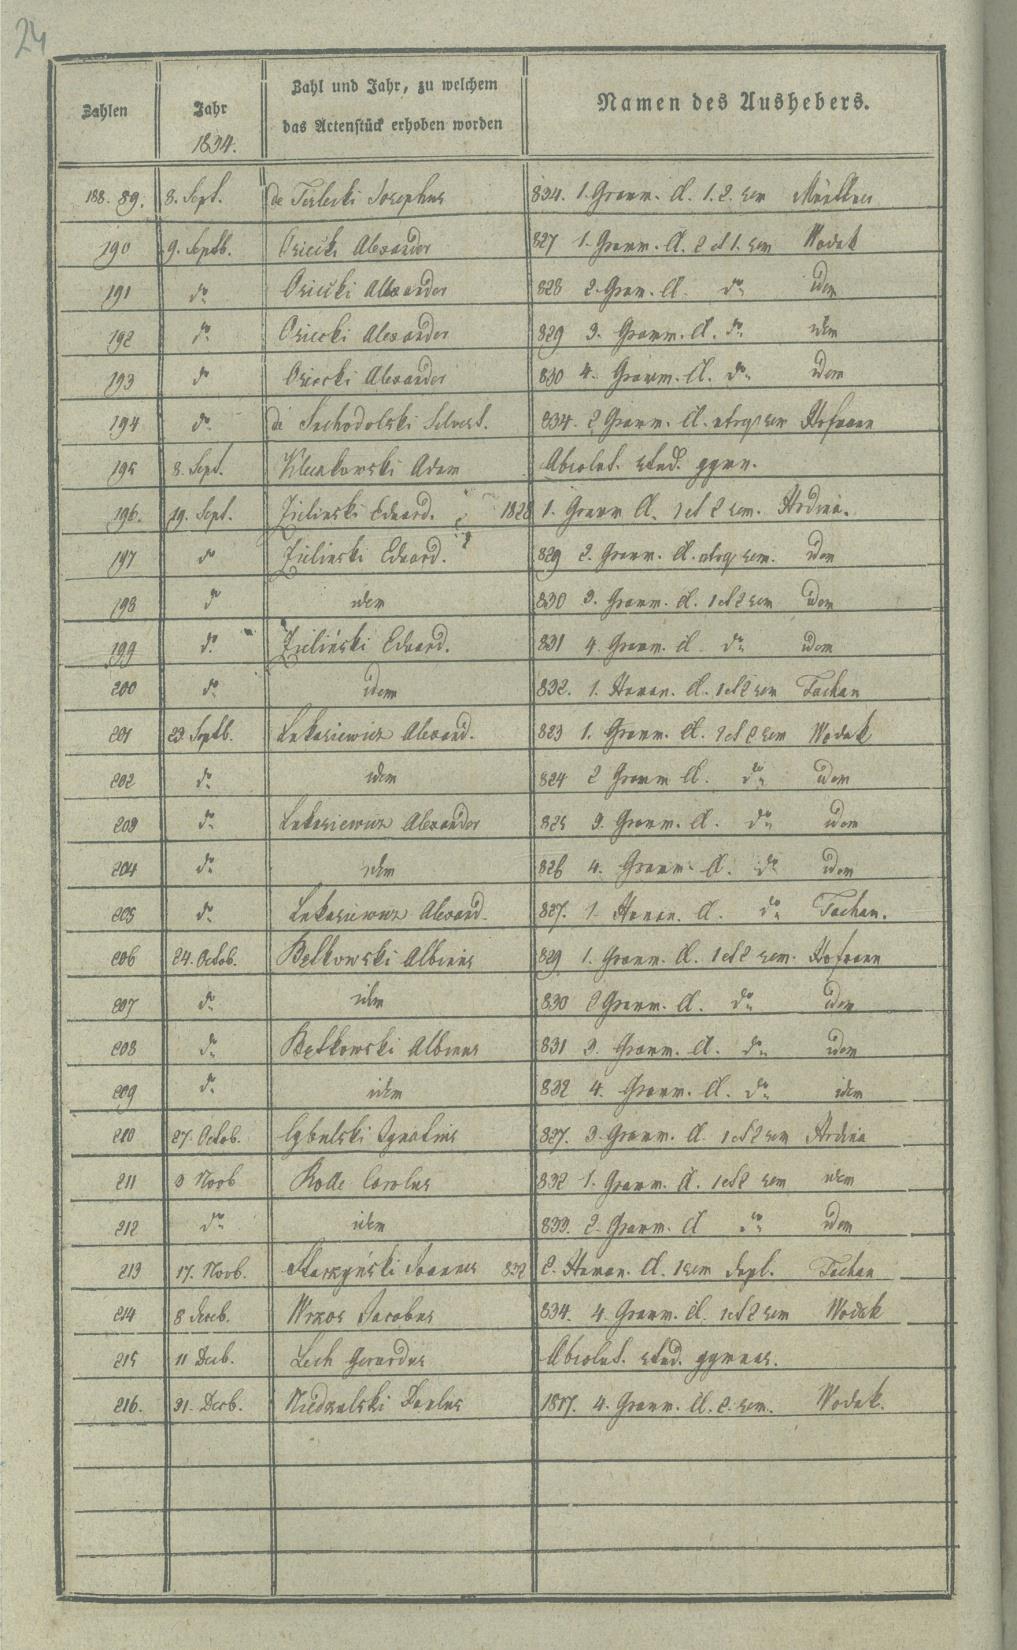 24
Zahlen
Jahr
1834.
Zahl und Jahr, zu welchem
das Actenstück erhoben worden
Namen des Aushebers.
188. 89. 8. Sept. de Terlecki Josephus 834. 1. Gramm. Cl. 1. 2. sem
190 9. Septb. Osiecki Alexander 827 1. Gramm. Cl. 2 et 1. sem Wodak
191 do Osiecki Alexander 828 2. Gram. Cl. do idem
192 do Osiecki Alexander 829 3. Gramm. Cl. do idem
193 do Osiecki Alexander 830 4. Gramm. Cl. do idem
194 do de Suchodolski Silvest. 834. 2 Gramm. Cl. utrq sem Hofmann
195 8. Sept. Adam Absolut. stud. gymn.
196. 19. Sept. Zielinski Eduard. 1828 1. Gramm Cl. 1 et 2 sem. Hrdina.
197 do Zielinski Eduard. 829 2. Gramm. Cl. utrq sem. idem
198 do idem 830 3. Gramm. Cl. 1 et 2 sem idem
199 do Zieliński Eduard. 831 4. Gramm. Cl. do idem
200 do idem 832. 1. Human. Cl. 1 et 2 sem Tachau
201 23. Septb. Lukasiewicz Alexand. 823 1. Gramm. Cl. 1 et 2 sem Wodak
202 do idem 824 2 Gramm Cl. do idem
203 do Lukasiewicz Alexander 825 3. Gramm. Cl. do idem
204 do idem 826 4. Gramm. Cl. do idem
205 do Lukasiewicz Alexand. 827. 1. Human. Cl. do Tachau.
206 24. Octob. Bętkowski Albinus 829 1. Gramm. Cl. 1 et 2 sem. Hofmann
207 do idem 830 2 Gramm. Cl. do idem
208 do Bętkowski Albinus 831 3. Gramm. Cl. do idem
209 do idem 832 4. Gramm. Cl. do idem
210 27. Octob. Cybulski Ignatius 827. 3. Gramm. Cl. 1 et 2 sem Hrdina
211 3 Novb Rolle Carolus 832 1. Gramm. Cl. 1 et 2 sem idem
212 do idem 833. 2. Gramm. Cl do idem
213 17. Novb. Starzyński Joannes 832 2. Human. Cl. 1 sem Dupl. Tachau
214 8 Decb. Wrzos Jacobus 834. 4. Gramm. Cl. 1 et 2 sem Wodak
215 11 Decb. Lech Gerardus Absolut. stud. gymnas.
216. 31. Decb. Niedzielski Paulus 1817. 4. Gramm. Cl. 2. sem. Wodak.